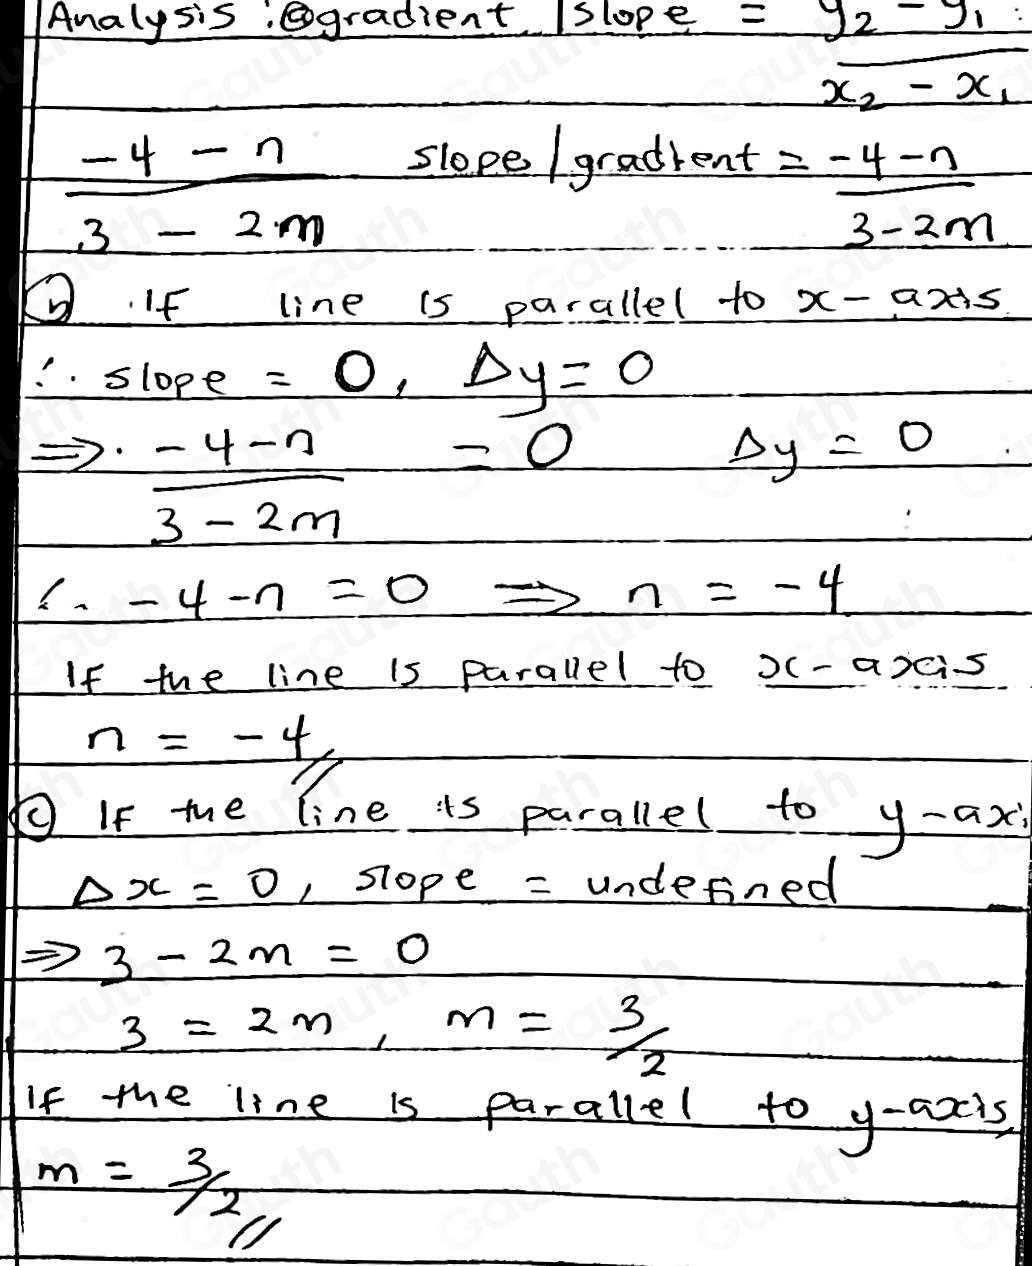 Analysis : ⓐ gradient / slope = y₂ - y₁
x₂ - x₁
-4 - n slope / gradient = -4-n
3 - 2m 3-2m
ⓑ If line is parallel to x-axis
∴ slope = 0, Δy = 0
⇒ -4-n = 0 Δy = 0
3 - 2m
∴ -4-n = 0 ⇒ n = -4
If the line is parallel to x-axis
n = -4
ⓒ If the line is parallel to y-axi
Δx = 0, slope = undefined
⇒ 3 - 2m = 0
3 = 2m, m = 3/2
If the line is parallel to y-axis,
m = 3/2